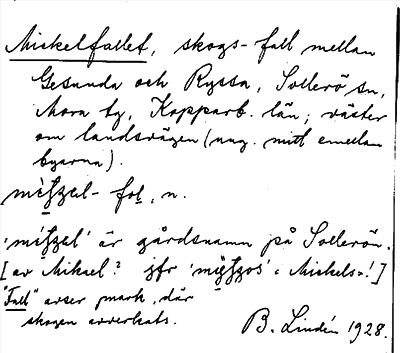 Mickelfallet, skogs-fall mellan
Gesunda och Ryssa, Sollerö sn,
Mora tg, Kopparb. län; väster
om landsvägen (ung. mitt emellan
byarna).
fol, n.
är gårdsnamn på Sollerön.
[av Mikael? jfr i Mickels-!]
"Fall" avser mark, där
skogen avverkats.
B. Lindén 1928.